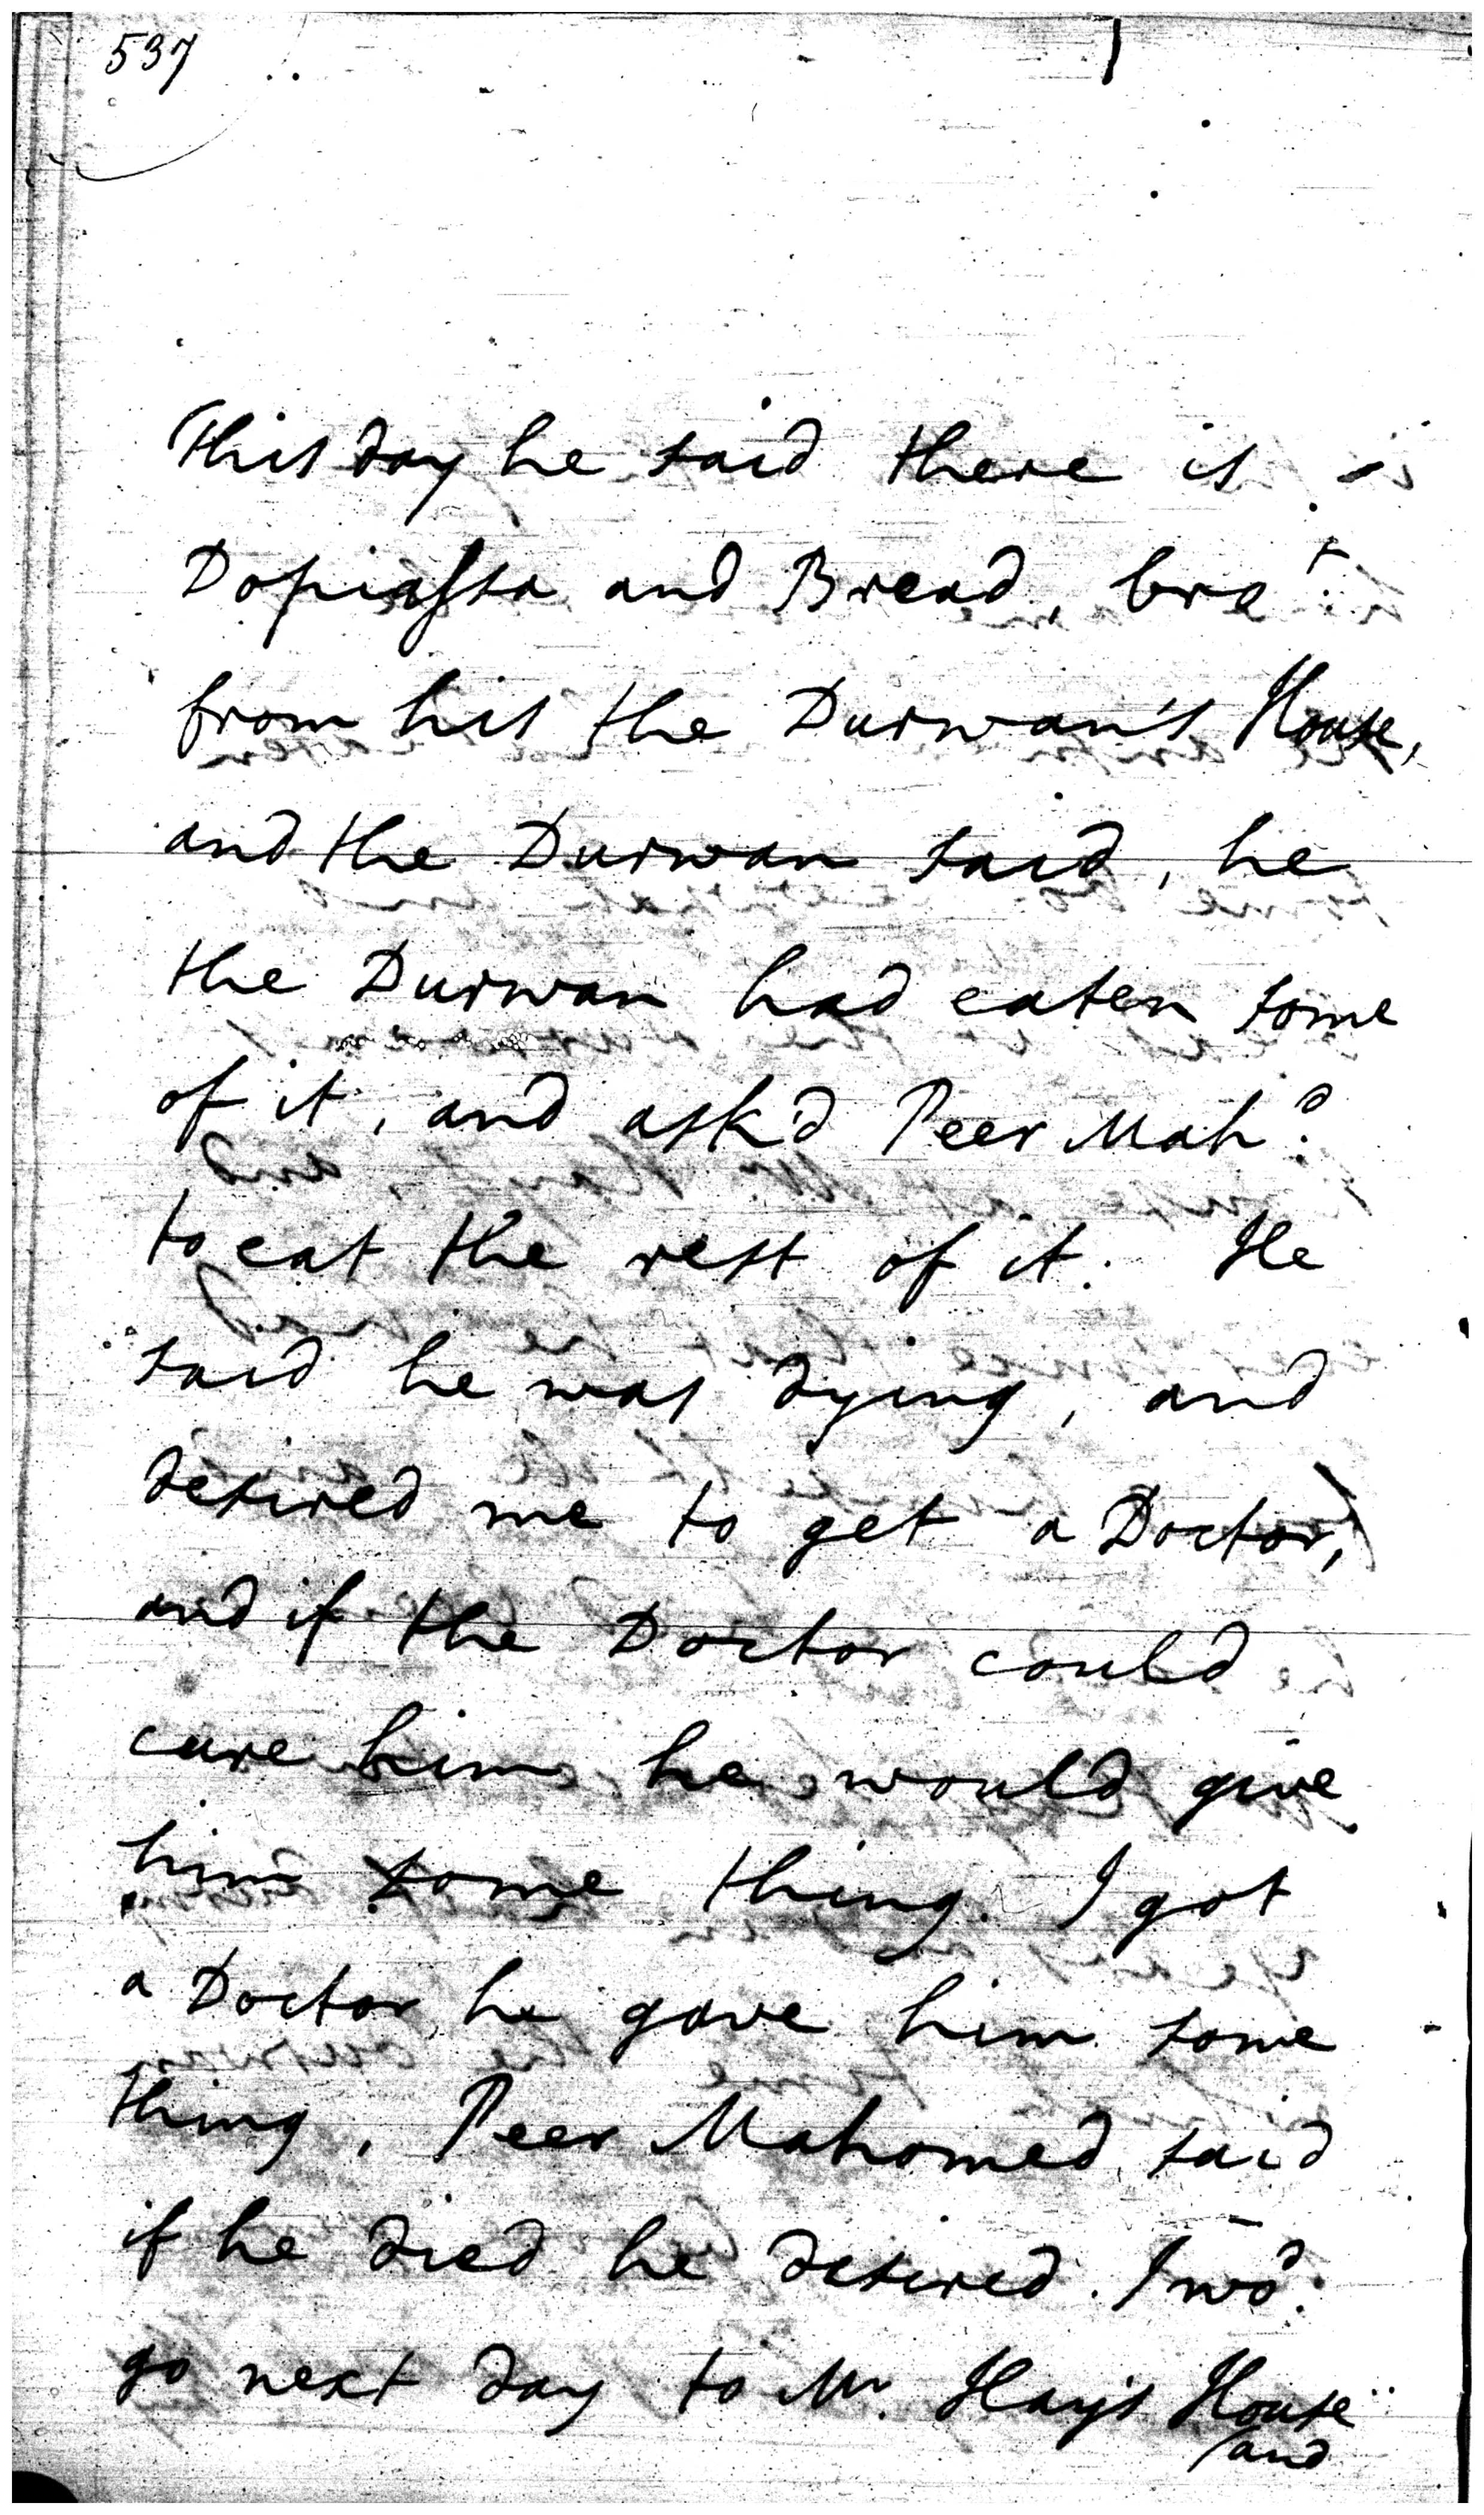 537
This day he said there is -
Dopiassa and Bread, bro.t
from his the Durwan's House,
and the Durwan said, he
the Durwan had eaten some
of it, and ask'd Peer Mah.d
to eat the rest of it. He
said he was dying, and
desired me to get a Doctor,
and if the Doctor could
cure him he would give
him some thing. I got
a Doctor, he gave him some
thing. Peer Mahomed said
if he died he desired I wo.d
go next day to Mr. Hay's House
and